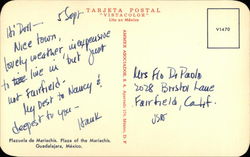 TARJETA POSTAL
"VISTACOLOR"
Lito en México
5 Sept
Hi Doll —
Nice town,
lovely weather, inexpensive
to live in 'but just
not Fairfield.
My best to Nancy &
deepest to you —
Hank
Plazuela de Mariachis. Plaza of the Mariachis.
Guadalajara, México.
V1470
Mrs Flo De Paolo
2028 Bristol Lane
Fairfield, Calif.
USA